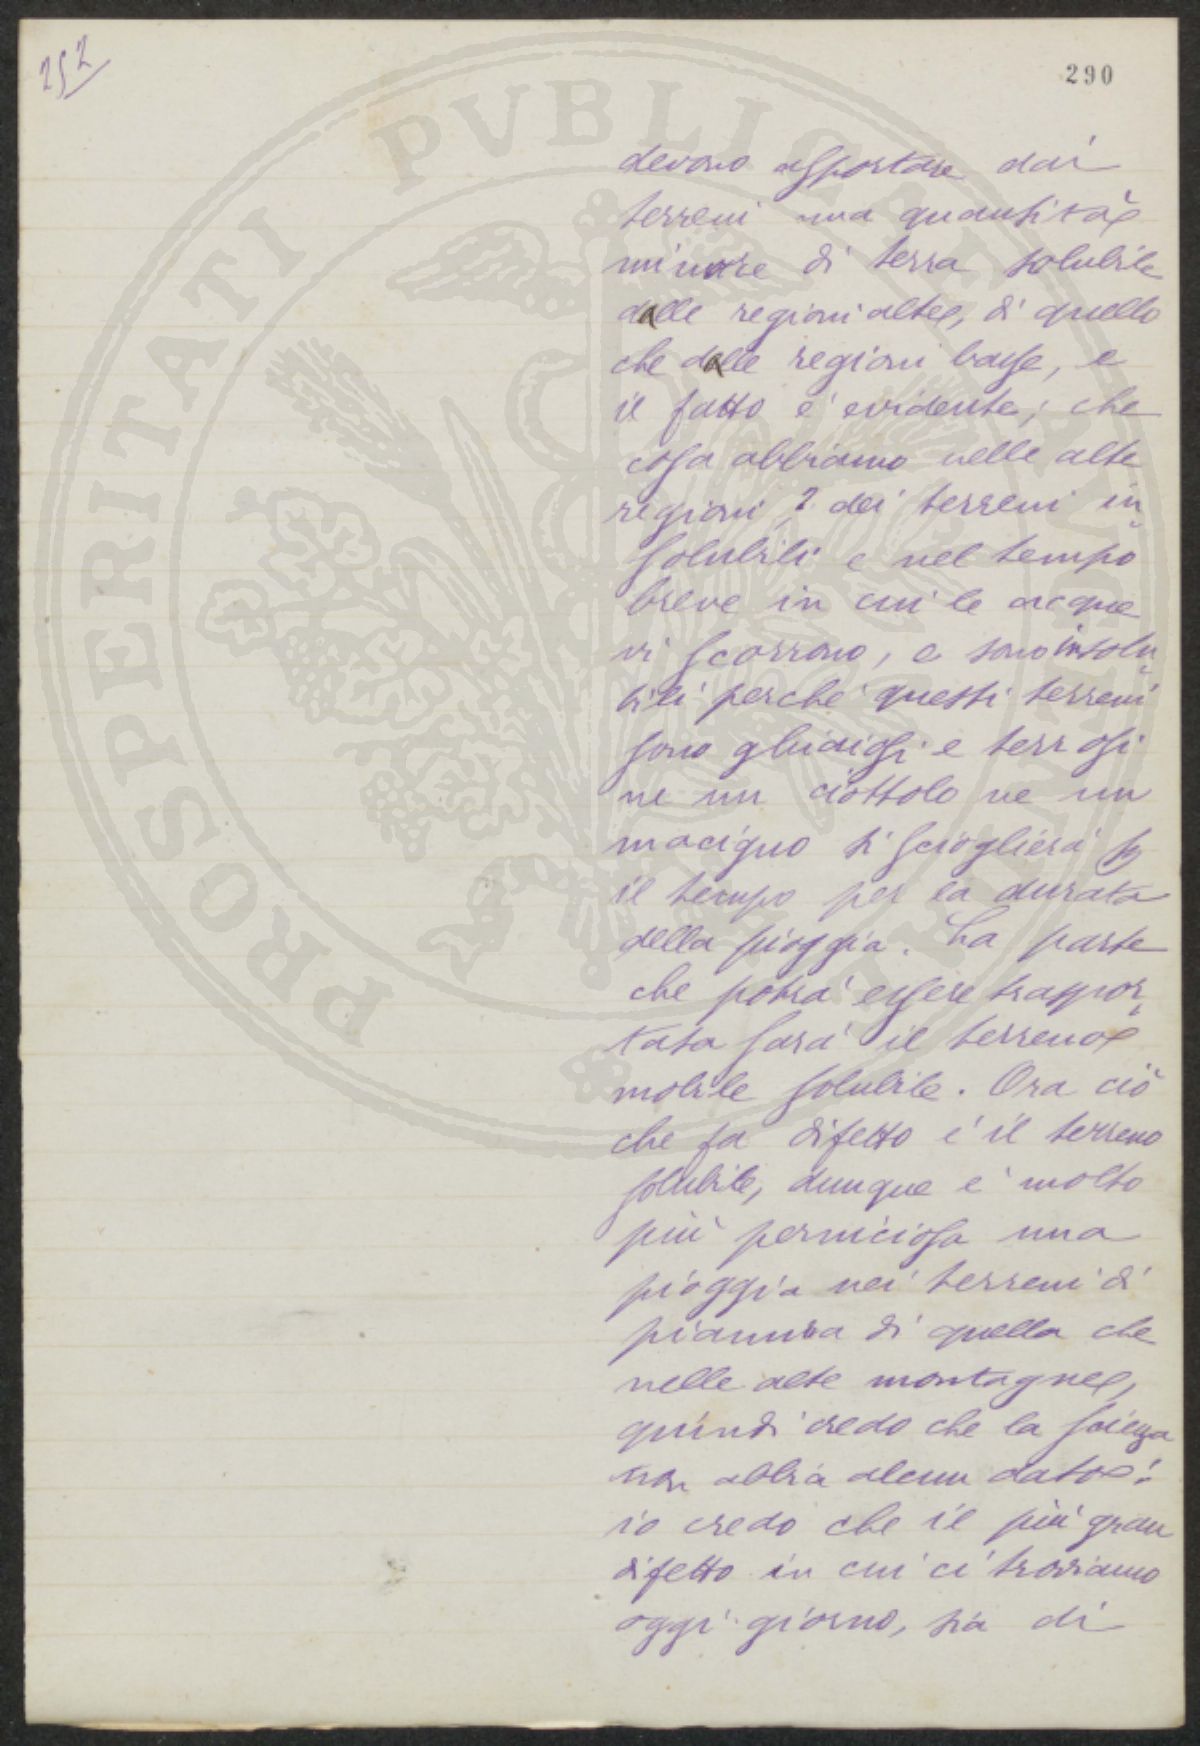 252
290
devono asportare dai
terreni una quantità
minore di terra solubile
dalle regioni alte, di quello
che dalle regioni basse, e
il fatto e' evidente; che
cosa abbiamo nelle alte
regioni? dei terreni in
solubili e nel tempo
breve in cui le acque
vi scorrono, e sono insolu
bili perche' questi terreni
sono ghiaiosi e terrosi
ne un ciottolo ne un
macigno si sciogliera'
il tempo per la durata
della pioggia. La parte
che potra' essere traspor
tata sara' il terreno
mobile solubile. Ora ciò
che fa difetto e' il terreno
solubile, dunque e' molto
più perniciosa una
pioggia nei terreni di
pianura di quella che
nelle alte montagne,
quindi credo che la scienza
non abbia alcun dato:
io credo che il più gran
difetto in cui ci troviamo
oggi giorno, sia di
PROSPERITATI PVBLICAE AVGENDAE